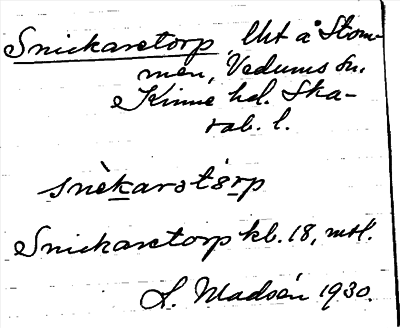 Snickaretorp, lht å Stom-
men, Vedums sn.
Kinne hd. Ska-
rab. l.
snèkarstórp
Snickaretorp kb. 18, mtl.
S. Madsén 1930.